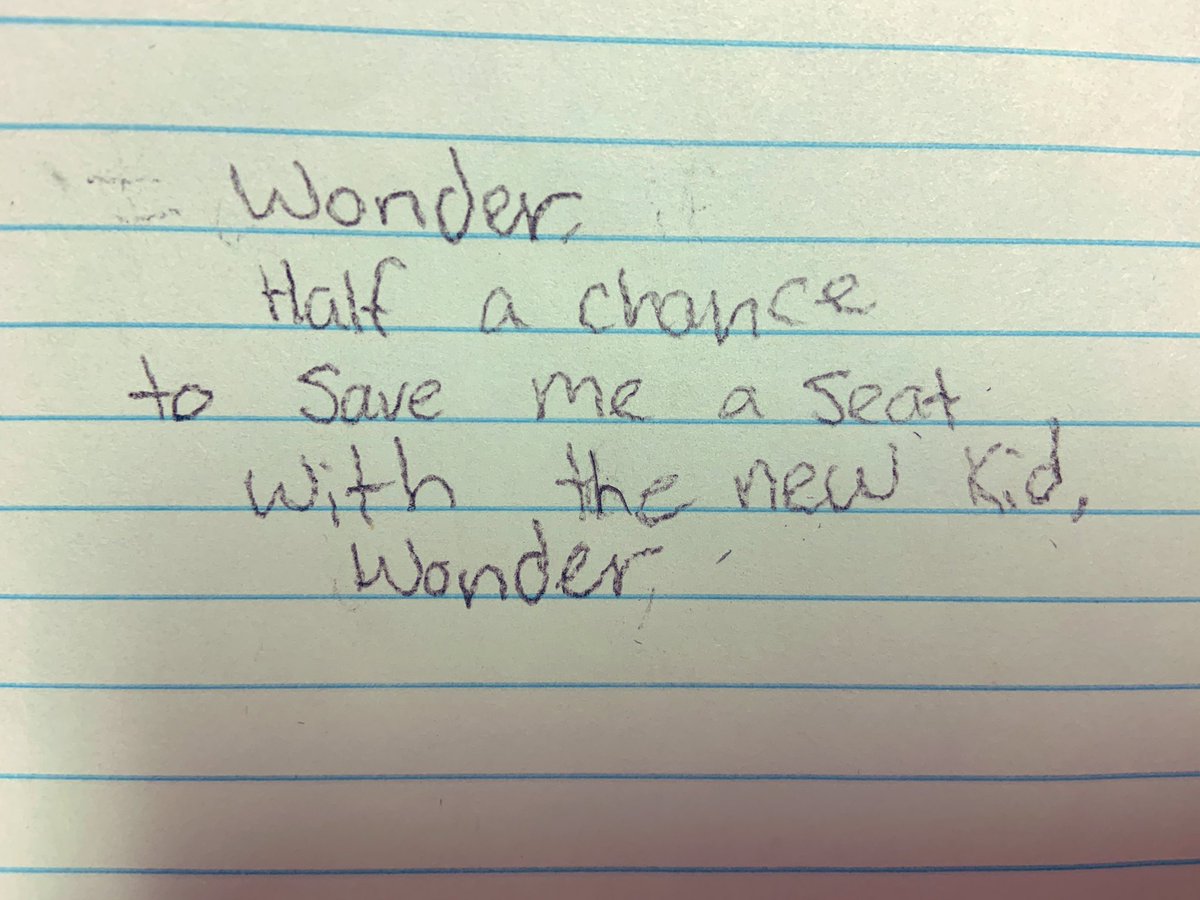 Wonder,
Half a chance
to save me a seat
with the new kid,
Wonder,